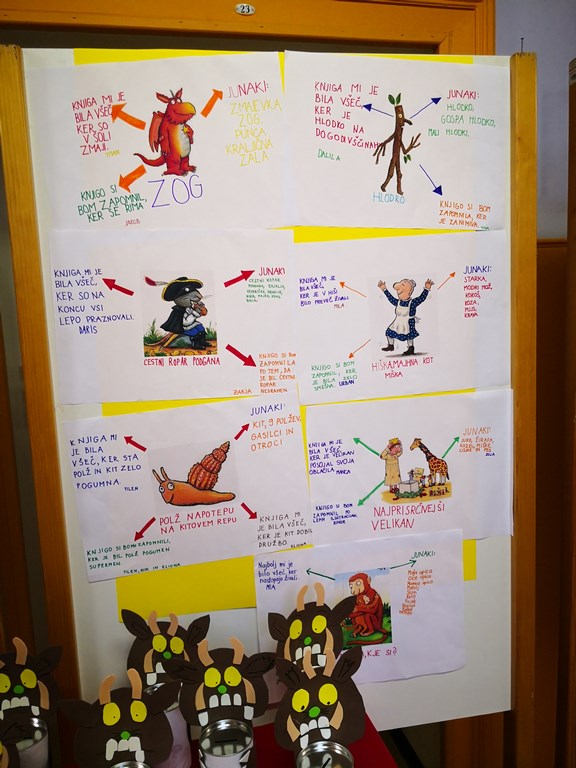 23
KNJIGA MI JE
BILA VŠEČ,
KER SO
V ŠOLI
ZMAJI.
JUNAKI:
ZMAJEVKA,
ZOG,
PUNCA,
KRALJIČNA
ZALA
KNJIGO SI
BOM ZAPOMNIL,
KER SE RIMA
JAKOB
ZOG
KNJIGA MI JE
BILA VŠEČ,
KER JE
HLODKO NA
DOGODIVŠČINAH
DALILA
JUNAKI:
HLODKO,
GOSPA HLODKO,
MALI HLODKI,
HLODKO
KNJIGO SI BOM
ZAPOMNILA, KER
JE ZANIMIVA
KNJIGA MI JE
BILA VŠEČ,
KER SO NA
KONCU VSI
LEPO PRAZNOVALI.
DARIS
JUNAKI
CESTNI ROPAR
CESTNI ROPAR PODGANA
KNJIGO SI BOM
ZAPOMNILA
PO TEM, DA
JE BIL CESTNI
ROPAR
NESRAMEN.
ZARJA
KNJIGA MI JE
BILA VŠEČ,
KER JE V HIŠI
BILO PREVEČ ŽIVALI
MILA
JUNAKI:
STARKA,
MODRI MOŽ,
KOKOŠ,
KOZA,
PUJS,
KRAVA
KNJIGO SI BOM
ZAPOMNIL, KER
JE BILA ZELO
SMEŠNA. URBAN
HIŠKA, MAJHNA KOT
MIŠKA
KNJIGA MI
JE BILA
VŠEČ, KER STA
POLŽ IN KIT ZELO
POGUMNA.
TILEN
JUNAKI:
KIT, 9 POLŽEV,
GASILCI IN
OTROCI
POLŽ NA POTEPU
NA KITOVEM REPU
KNJIGO SI BOMO ZAPOMNILI,
KER JE BIL POLŽ POGUMEN
SUPERMEN.
KNJIGA MI
JE BILA VŠEČ,
KER JE KIT DOBIL
DRUŽBO.
KNJIGA MI JE
BILA VŠEČ,
KER JE VELIKAN
POSOJAL SVOJA
OBLAČILA
JUNAKI:
KNJIGO SI BOM
ZAPOMNIL PO
LEPIH ILUSTRACIJAH
NAJPRISRČNEJŠI
VELIKAN
Najbolj mi je
bilo všeč, ker
nastopajo živali
MIA
JUNAKI:
, KJE SI?